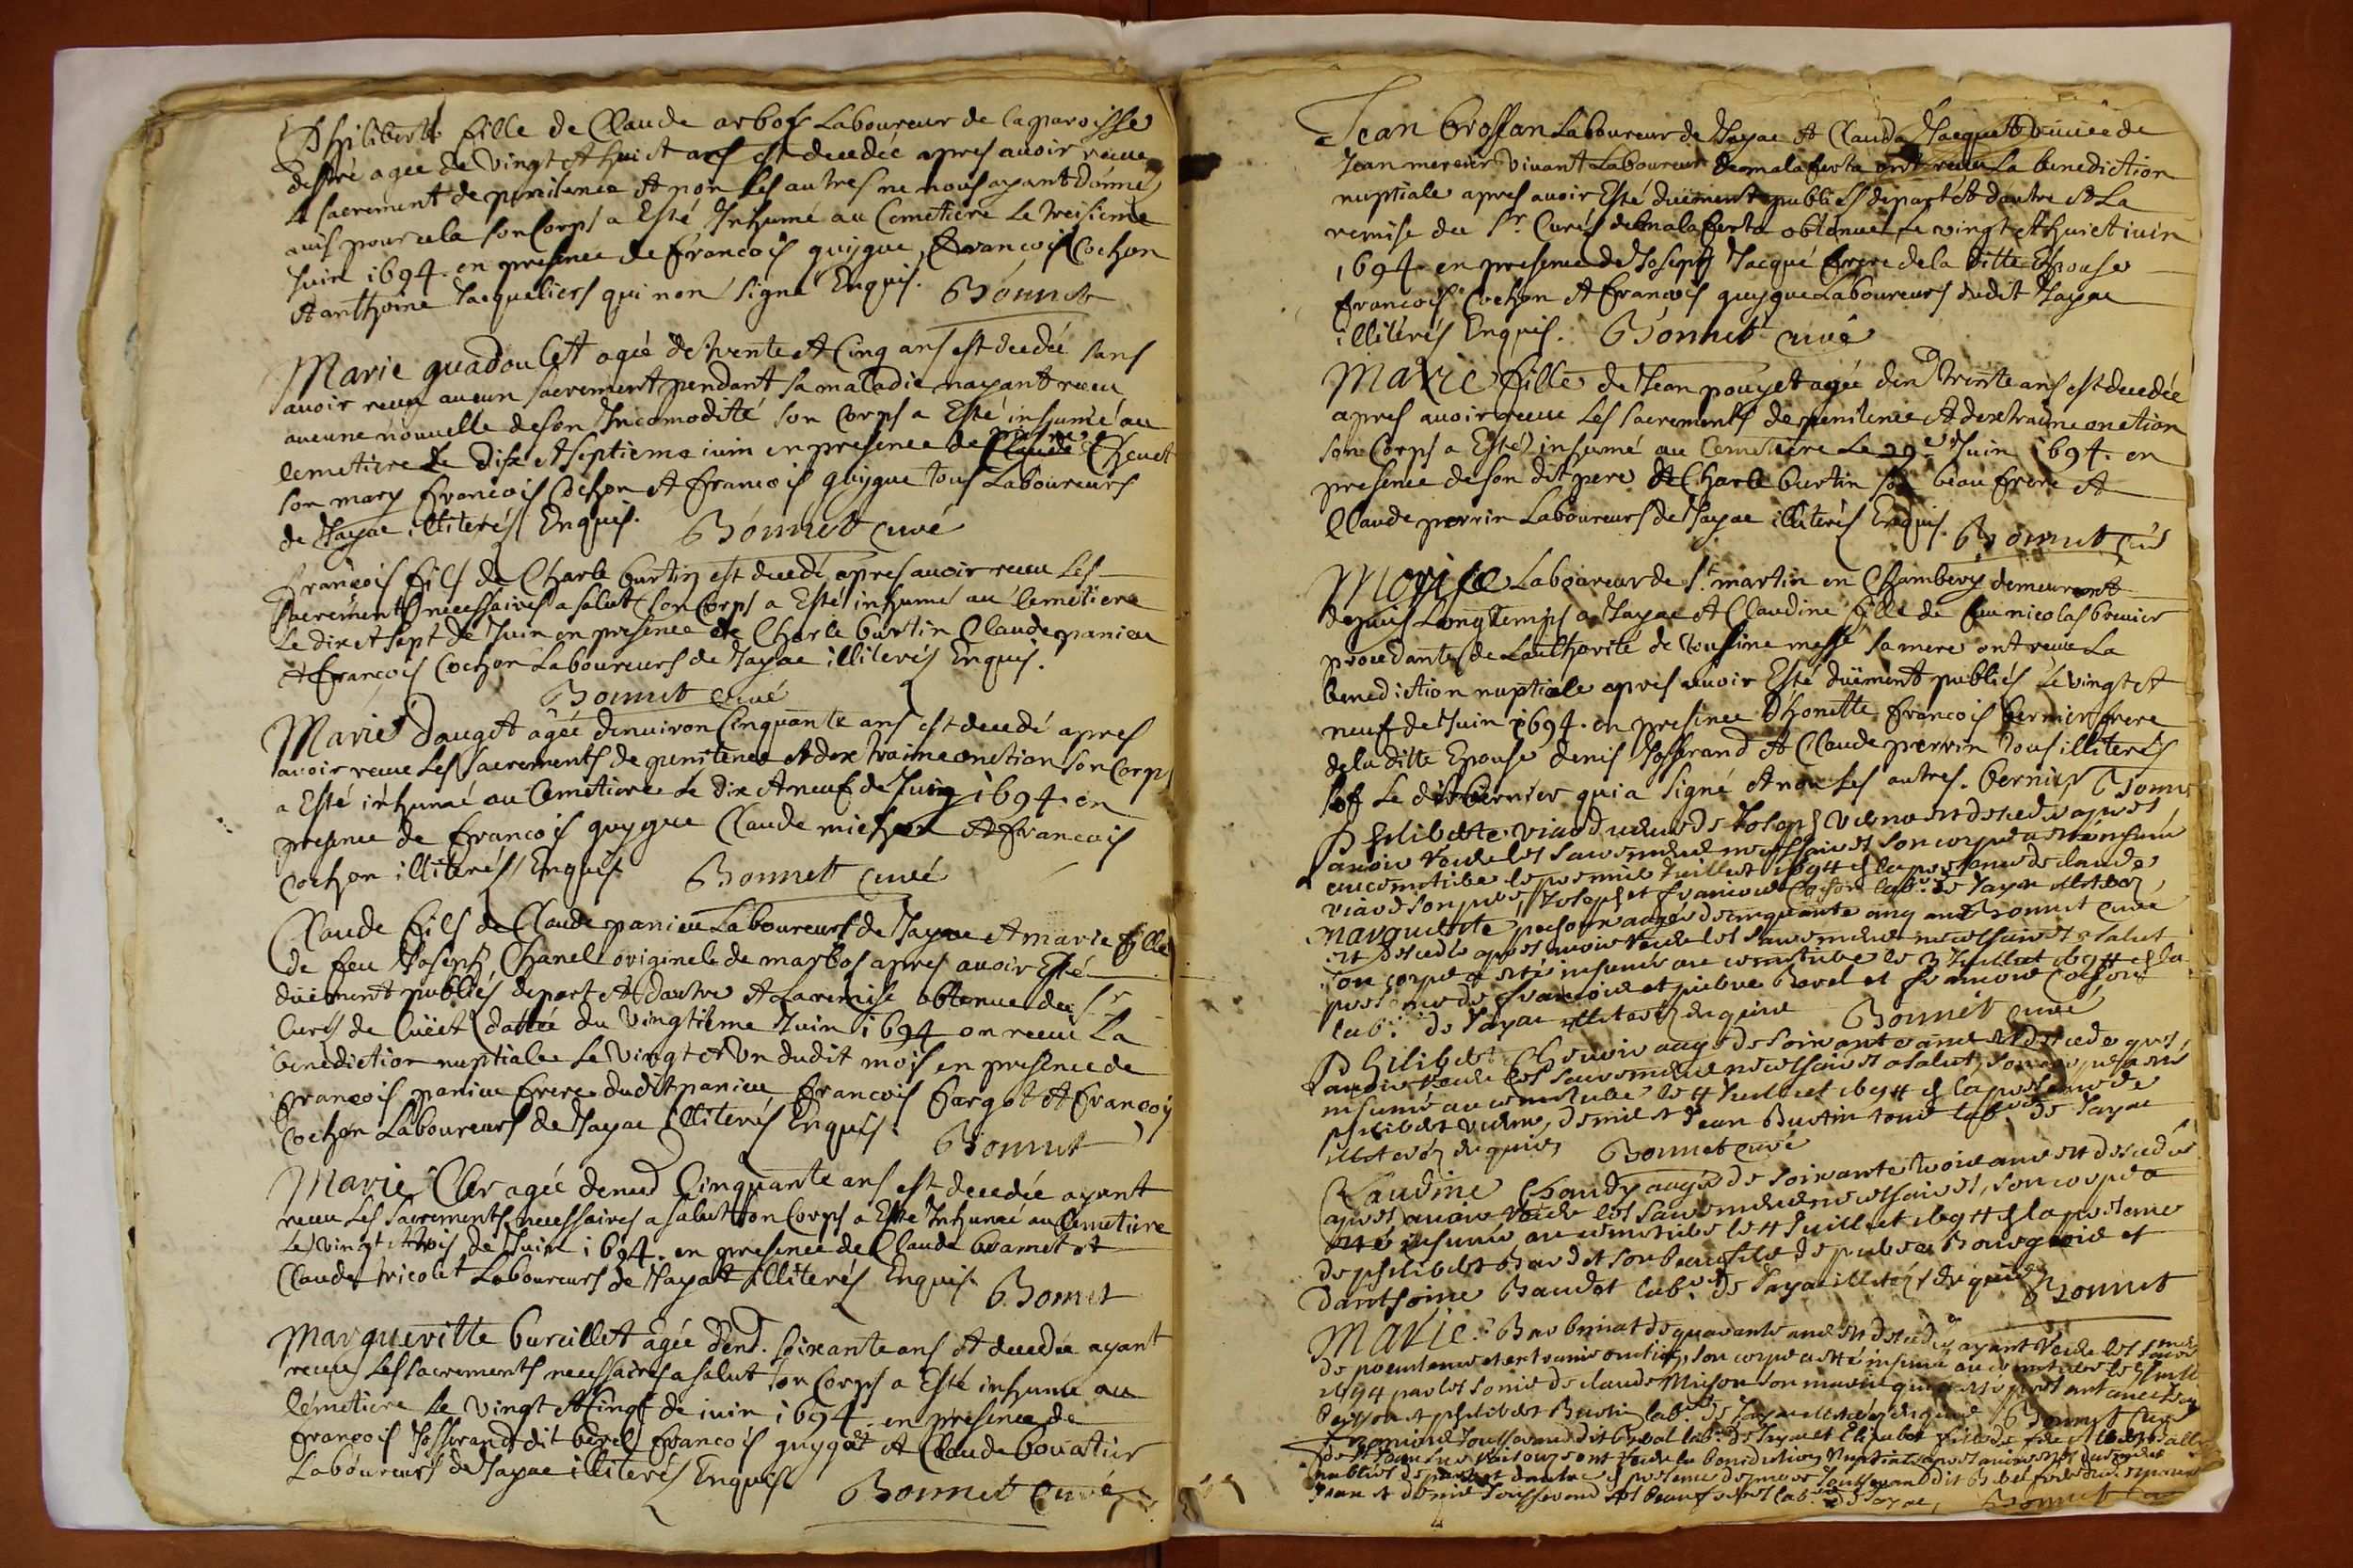 Philiberte fille de Claude arbos Laboureur de la paroisse
destré agee de vingt et huict ans est decedée apres avoir receu
le sacrement de penitence et non les autres ne nous ayant donné
avis pour cela son corps a Esté Inhumé au Cemetiere le treisieme
Juin 1694. en presence de francois guigue, francois Cochon
et anthoine Jaqueliers qui non signé Enquis. Bonnet
Marie guadoulet agée de trente et cinq ans est decedée sans
avoir receu aucun sacrement pendant sa maladie nayant receu
aucune nouvelle de son Incomodité son Corps a Esté inhumé au
cemetiere le dix et septieme iuin en presence de
son mary francois Cochon et francois guigue tous Laboureurs
de Jayac illiterés Enquis. Bonnet curé
François fils de Charle burtin est decedé apres avoir receu Les
sacrements necessaires a salut son Corps a Esté inhumé au Cemetiere
Le dix et sept de Juin en presence de Charle burtin Claude panieu
et françois Cochon Laboureurs de Jayac illiterés Enquis.
Bonnet curé
Marie daugat agée denuiron Cinquante ans est decedé apres
avoir receu Les sacrements de penitence et dextraime onction son Corps
a Esté inhumé au Cemetiere Le dix et neuf de Juin 1694. en
presence de francois guygue Claude michon et francois
Cochon illiterés Enquis. Bonnet curé
Claude fils de Claude panieu Laboureurs de Jayac et marie fille
de feu Joseph Chanel originele de marbos apres avoir Esté
duëment publiés de part et dautre et La remise obtenue du Sr
Curé de Cuët dattée du vingtieme Juin 1694 on receu La
benediction nuptiale Le vingt et un dudit mois en presence de
françois panieu frere dudit panieu francois fargot et françois
Cochon Laboureurs de Jayac illiterés Enquis. Bonnet
Marie Cler agée denud Cinquante ans est decedée ayant
receu Les sacrements necessaires a salut son Corps a Esté Inhumé au Cemetiere
Le vingt et trois de Juin 1694. en presence de Claude bramet et
Claude tricolet Laboureurs de Jayat illiterés Enquis. Bonnet
Marguerite bureillet agée dend. soixante ans et decedée ayant
receu Les sacrements necessaires a salut son Corps a Esté inhumé au
Cémetiere Le vingt et cinq de iuin 1694. en presence de
françois Josserand dit berel francois guygat et Claude bouatier
Laboureurs de Jayac illiterés Enquis Bonnet curé
Jean brossan Laboureur de Jayac et Clauda Jacquet veuve de
Jean mercier vivant Laboureur de malaferta ont receu La benediction
nuptiale apres avoir Esté duëment publiés de part et dautre et La
remise du Sr. Curé de malaferta obtenue Le vingt et huict iuin
1694. en presence de Joseph Jacqué frere de la ditte Epouse
francois Cochon et francois guygue Laboureurs dudit Jayac
illiterés Enquis. Bonnet curé
Marie fille de Jean pouyet agée dend trente ans est decedée
apres avoir receu Les sacrements de penitence et dextraime onction
son Corps a Esté inhumé au Cemetiere Le 29e Juin 1694. en
presence de son dit pere et Charle burtin son beau frere et
Claude perrin Laboureurs de Jayac illiterés Enquis. Bonnet curé
Laboureur de St. martin en Chambery demeurant
depuis Longtemps a Jayac et Claudine fille de feu nicolas bernier
procedante de Lauthorité de messé sa mere ont receu La
benediction nuptiale apres avoir Esté duëment publiés Le vingt et
neuf de Juin 1694. en presence Dhonette francois bernier frere
de la ditte Epouse denis Josserand et Claude perrin tous illiterés
sof Le dit bernier qui a signé et non Les autres. bernier Bonnet
Philiberte viard de Joseph est decedee apres
avoir receu les sacremens necessaires son corps a esté inhumé
au cemetiere le premier Juillet 1694 en la presence de claude
viard son pere, Joseph et francois Cochon labrs de Jayac illiterez,
Marguerite pochon agée de cinquante cinq ans Bonnet curé
est decedée apres avoir receu les sacremens necessaires a salut
son corps a esté inhumé au cemetiere le 3 Juillet 1694 en la
presence de francois et pierre Borel et francois Cochon
labrs de Jayac illiterez enquis Bonnet curé
Philibert Chevin aagé de soixante ans est decedé apres
avoir receu les sacremens necessaires a salut, son corps a esté
inhumé au cemetiere le 4 Juillet 1694 en la presence de
philibert denis et Jean Burtin tous labrs de Jayac
illiterez enquis Bonnet curé
Claudine Chaudy aagée de soixante trois ans est decedée
apres avoir receu les sacremens necessaires, son corps a
esté inhumé au cemetiere le 4 Juillet 1694 en la presence
de philibert Baudet son beaufils de pierre Bourgeois et
danthoine Baudet labrs de Jayac illiterez enquis Bonnet
Marie de quarante ans est decedée ayant receu les sacremens
de penitence et extraime onction, son corps a esté inhumé au cemetiere le
1694 par les soins de claude Michon son mari
et philibert Burtin labrs de Jayac illiterez enquis Bonnet curé
francois Josserand dit Berel labr de Jayac et
ont receu la benediction Nuptiale apres avoir esté
publiés de part et dautre en presence de Josserand dit Berel
Jean et denis Josserand labrs de Jayac, Bonnet